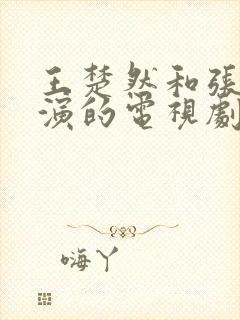 王楚然和張
演的電視劇
嗨丫